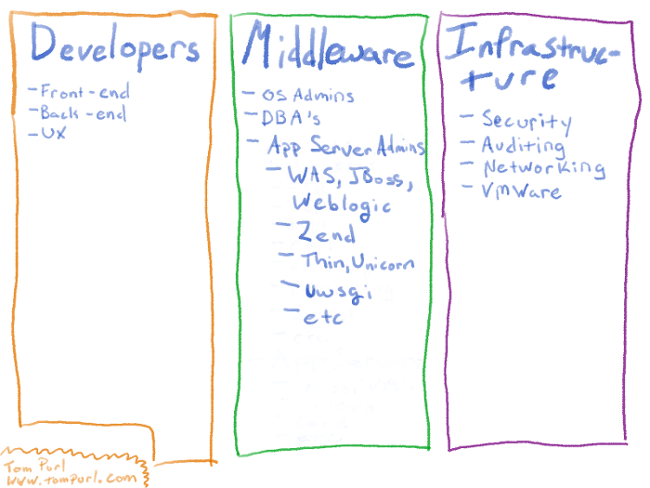 Developers
- Front-end
- Back-end
- UX
Middleware
- OS Admins
- DBA's
- App Server Admins
- WAS, JBoss,
Weblogic
- Zend
- Thin, Unicorn
- uwsgi
- etc
Infrastruc-
ture
- Security
- Auditing
- Networking
- VMWare
Tom Purl
www.tompurl.com